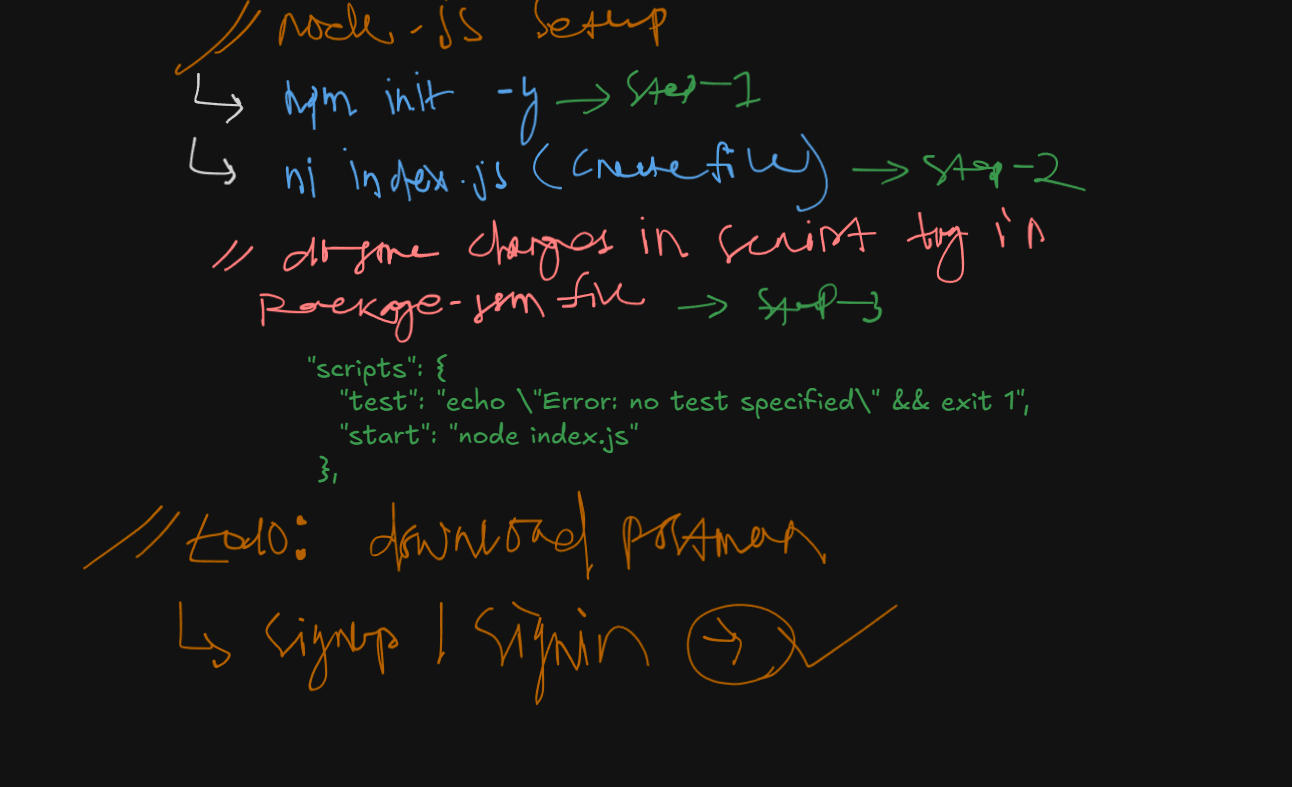 // node.js setup
↳ npm init -y → step-1
↳ ni index.js (create file) → step-2
// do some changes in script tag in
package-json file → step-3
"scripts": {
"test": "echo \"Error: no test specified\" && exit 1",
"start": "node index.js"
},
// todo: download postman
↳ signup | signin →